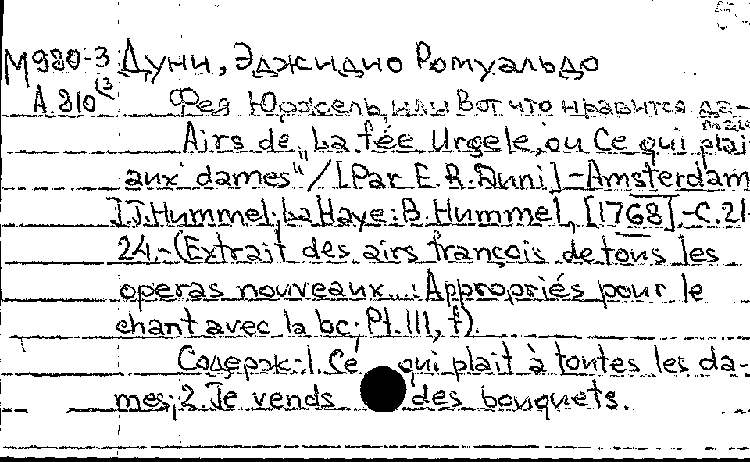 М980-3 Дуни, Эджидио Ромуальдо
А.810 (3
Фея Юржель, или Вот что нравится да-
мам
Airs de "La fée Urgele, ou Ce qui plait
aux dames" / [Par E.R.Duni] - Amsterdam
J.J.Hummel; La Haye: B. Hummel, [1768]. - C.21-
24. - (Extrait des airs françois de tous les
operas nouveaux...: Appropriés pour le
chant avec la bc; Pt. III, f).
Содерж.: 1. Ce qui plait à toutes les da-
mes; 2. Je vends des bouquets.